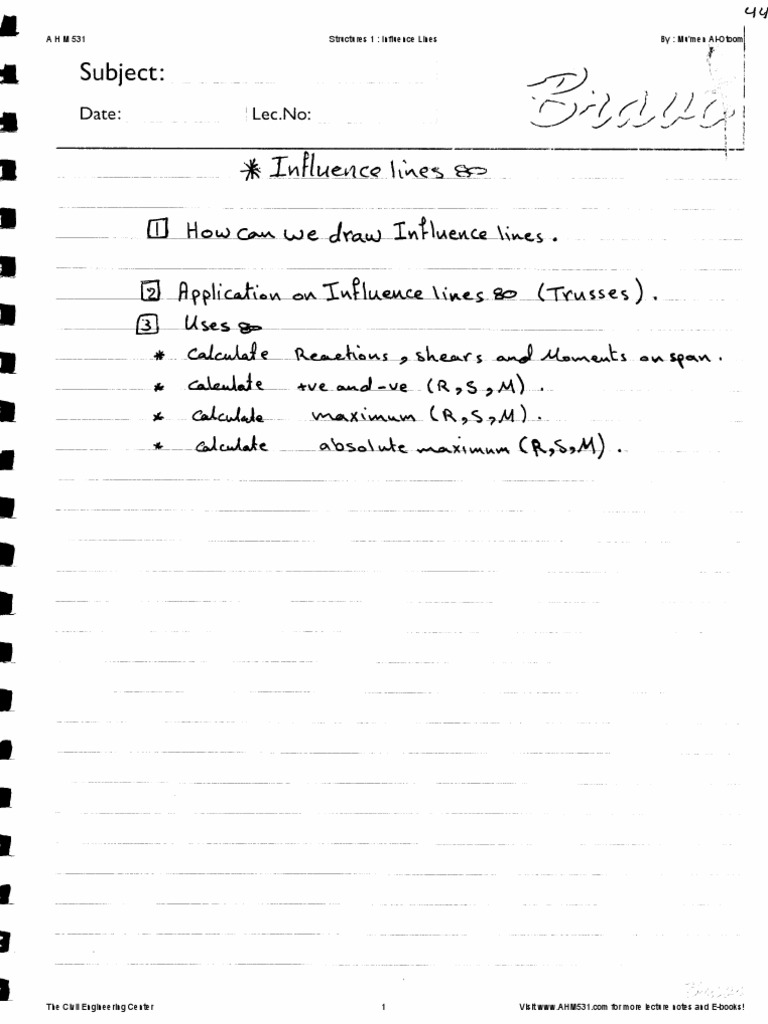 44
A H M 531 Structures 1 : Influence Lines By : Mo'men Al-Otoom
Subject:
Bravo
Date: Lec.No:
* Influence lines :-
1 How can we draw Influence lines.
2 Application on Influence lines :- (Trusses).
3 Uses :-
* Calculate Reactions, shears and Moments on span.
* Calculate +ve and -ve (R,S,M).
* Calculate maximum (R,S,M).
* Calculate absolute maximum (R,S,M).
The Civil Engineering Center 1 Visit www.AHM531.com for more lecture notes and E-books!